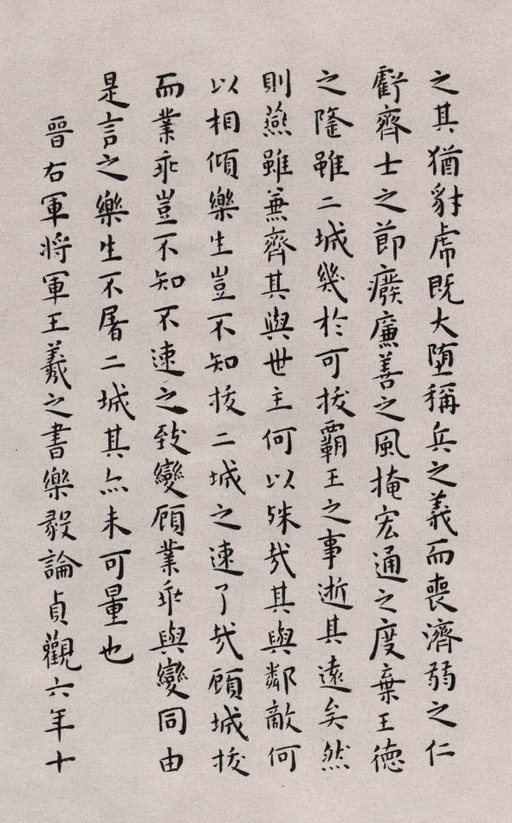 之其猶豺虎既大堕稱兵之義而喪濟弱之仁
虧齊士之節癈廉善之風掩宏通之度棄王德
之隆雖二城幾於可拔霸王之事逝其遠矣然
則燕雖兼齊其與世主何以殊㢤其與鄰敵何
以相傾樂生豈不知拔二城之速了㢤顧城拔
而業乖豈不知不速之致變顧業乖與變同由
是言之樂生不屠二城其亦未可量也
晉右軍將軍王羲之書樂毅論貞觀六年十